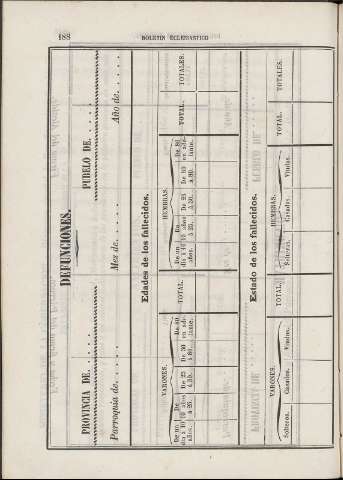 188
BOLETIN ECLESIASTICO
DEFUNCIONES.
PROVINCIA DE. . . . . PUBELO DE. . . . .
Parroquia de. . . . . Mes de. . . . . Año de. . . . .
Edades de los fallecidos.
VARONES. HEMBRAS.
De un dia á 10 años. De 10 años á 25. De 25 á 50. De 50 á 80. De 80 en adelante. TOTAL. De un dia á 10 años. De 10 años á 25. De 25 á 50. De 50 á 80. De 80 en adelante. TOTAL. TOTALES.
Estado de los fallecidos.
VARONES. HEMBRAS.
Solteros. Casados. Viudos. TOTAL. Solteras. Casadas. Viudas. TOTAL. TOTALES.